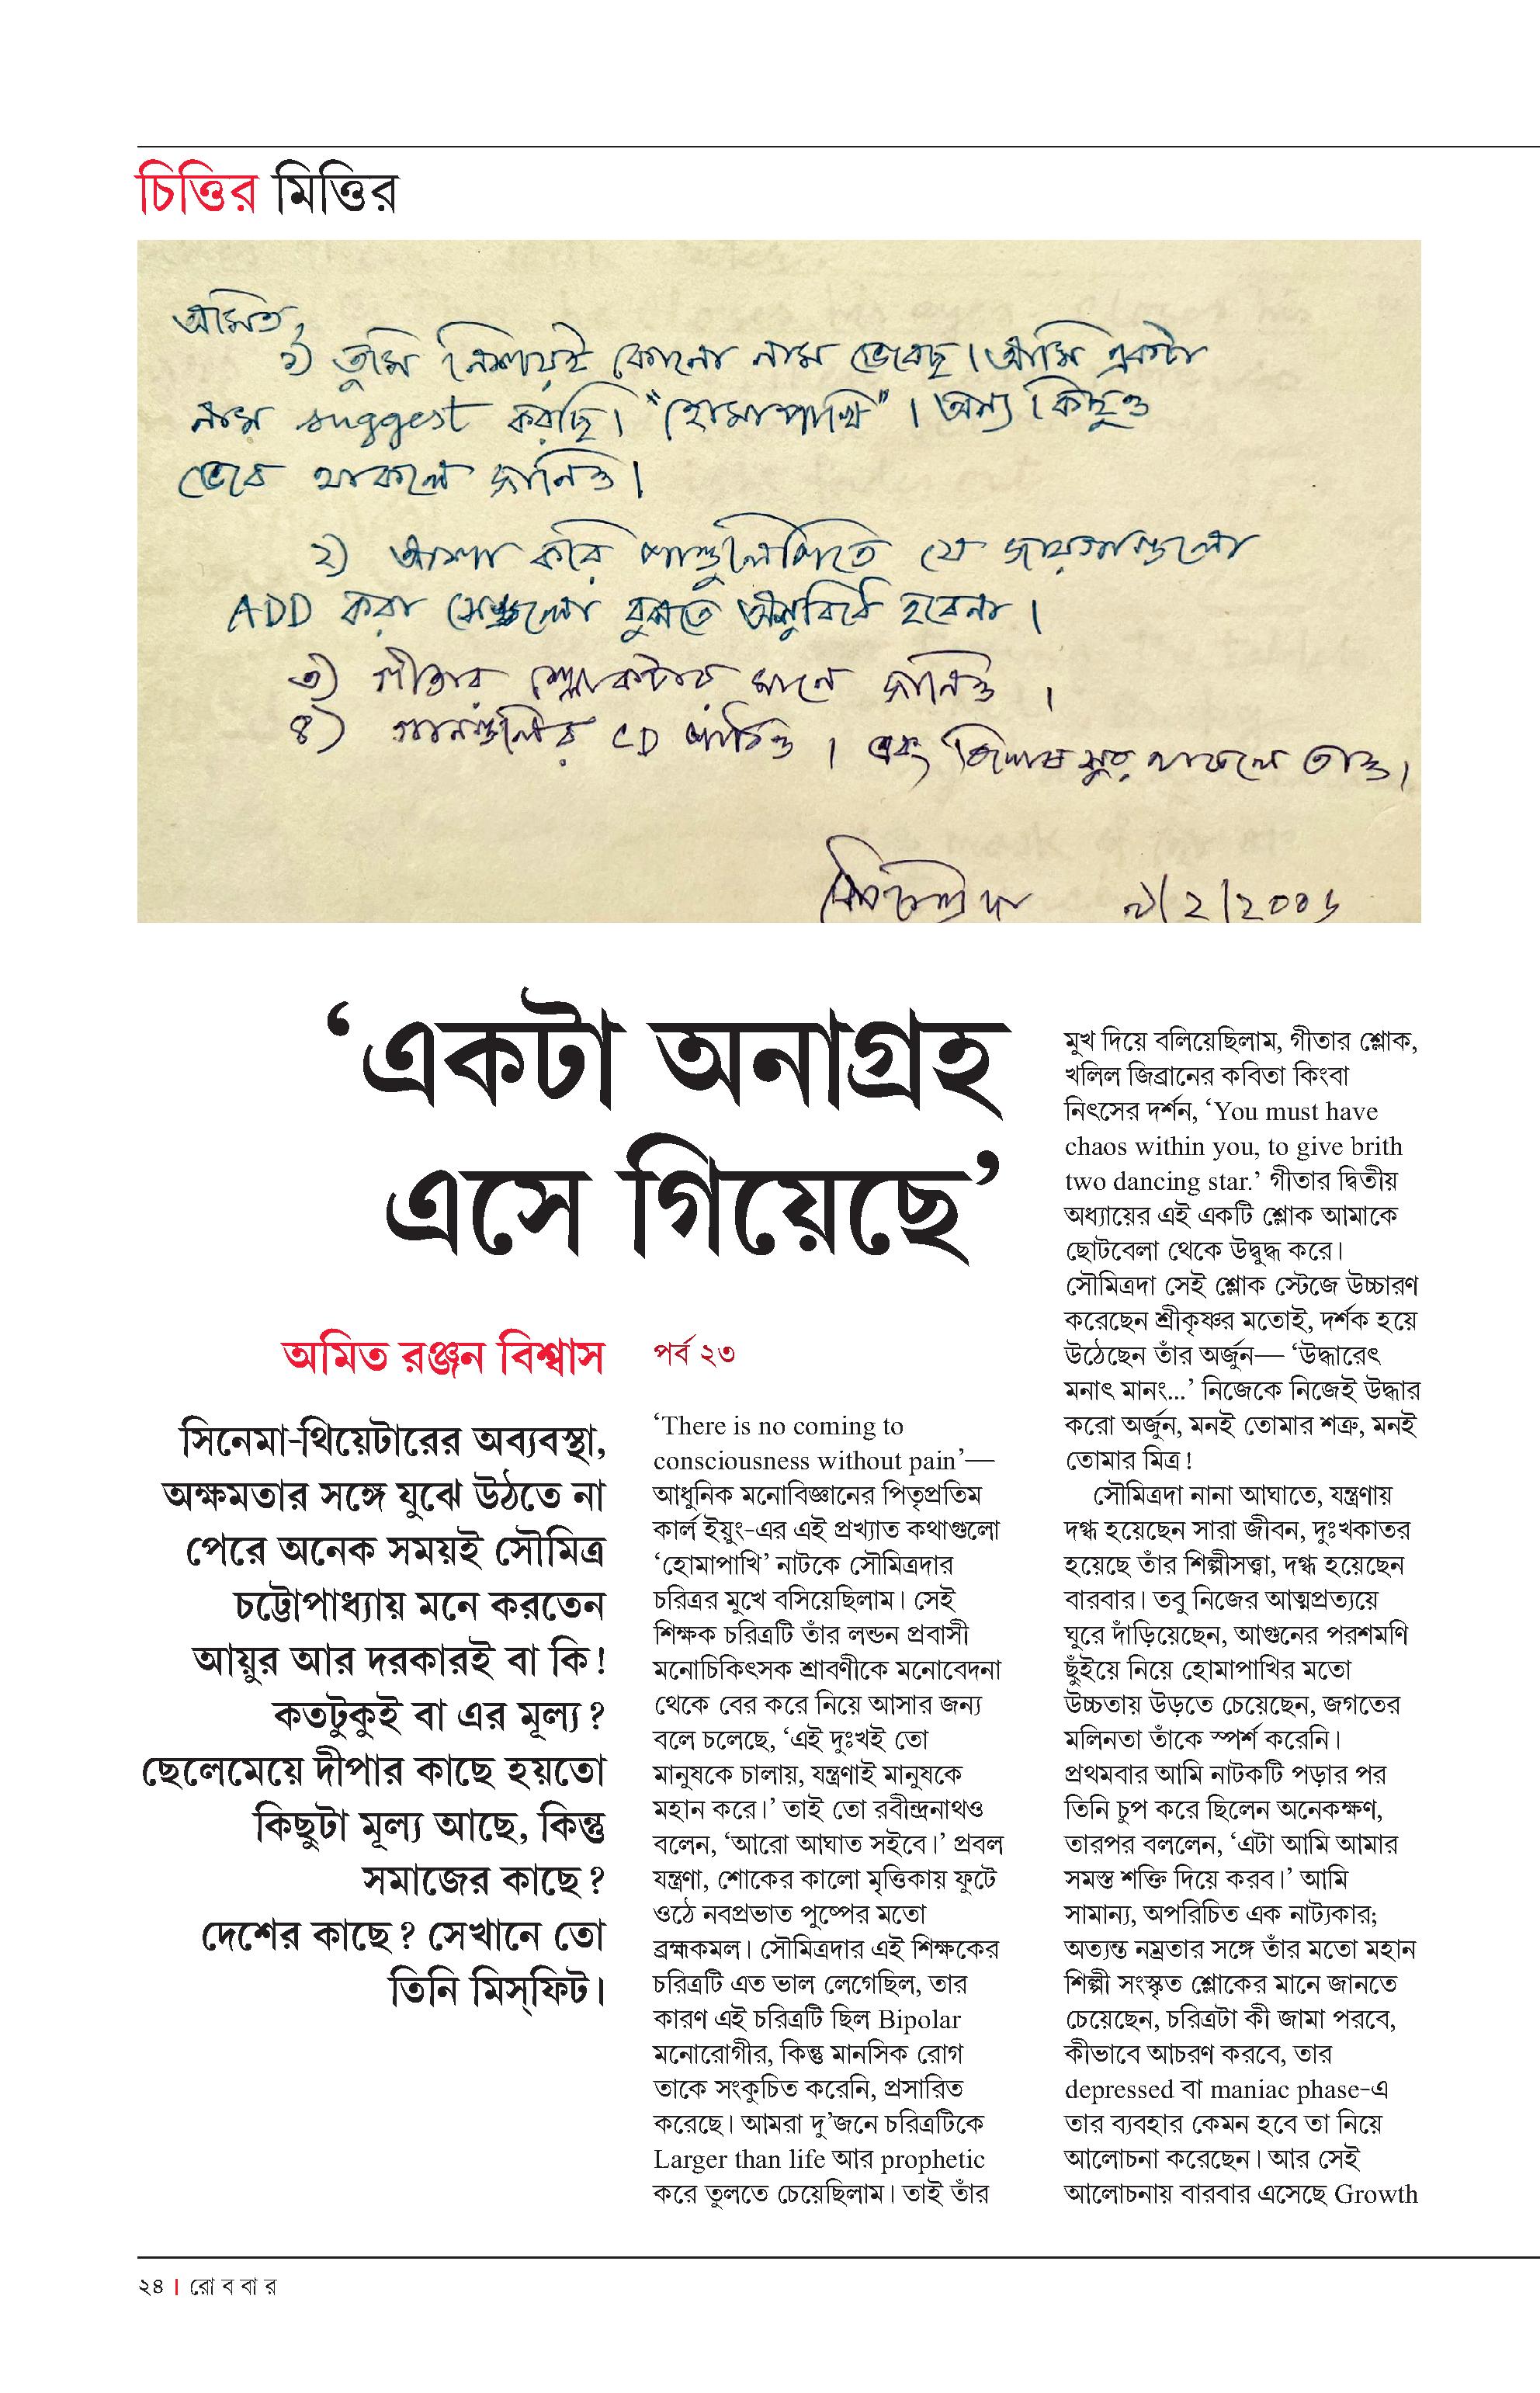 চিত্তির মিত্তির
অমিত,
১) তুমি নিশ্চয়ই কোনো নাম ভেবেছ। আমি একটা
নাম suggest করছি। "হোমাপাখি"। অন্য কিছুও
ভেবে থাকলে জানিও।
২) আশা করি পাণ্ডুলিপিতে যে জায়গাগুলো
ADD করা সেগুলো বুঝতে অসুবিধে হবেনা।
৩) গীতার শ্লোকটার মানে জানিও।
৪) গানগুলির CD পাঠিও। এবং বিশেষ সুর থাকলে তাও।
সৌমিত্রদা /2/2006
‘একটা অনাগ্রহ
এসে গিয়েছে’
অমিত রঞ্জন বিশ্বাস
সিনেমা-থিয়েটারের অব্যবস্থা,
অক্ষমতার সঙ্গে যুঝে উঠতে না
পেরে অনেক সময়ই সৌমিত্র
চট্টোপাধ্যায় মনে করতেন
আয়ুর আর দরকারই বা কি!
কতটুকুই বা এর মূল্য?
ছেলেমেয়ে দীপার কাছে হয়তো
কিছুটা মূল্য আছে, কিন্তু
সমাজের কাছে?
দেশের কাছে? সেখানে তো
তিনি মিস্‌ফিট।
পর্ব ২৩
‘There is no coming to
consciousness without pain’—
আধুনিক মনোবিজ্ঞানের পিতৃপ্রতিম
কার্ল ইয়ুং-এর এই প্রখ্যাত কথাগুলো
‘হোমাপাখি’ নাটকে সৌমিত্রদার
চরিত্রর মুখে বসিয়েছিলাম। সেই
শিক্ষক চরিত্রটি তাঁর লন্ডন প্রবাসী
মনোচিকিৎসক শ্রাবণীকে মনোবেদনা
থেকে বের করে নিয়ে আসার জন্য
বলে চলেছে, ‘এই দুঃখই তো
মানুষকে চালায়, যন্ত্রণাই মানুষকে
মহান করে।’ তাই তো রবীন্দ্রনাথও
বলেন, ‘আরো আঘাত সইবে।’ প্রবল
যন্ত্রণা, শোকের কালো মৃত্তিকায় ফুটে
ওঠে নবপ্রভাত পুষ্পের মতো
ব্রহ্মকমল। সৌমিত্রদার এই শিক্ষকের
চরিত্রটি এত ভাল লেগেছিল, তার
কারণ এই চরিত্রটি ছিল Bipolar
মনোরোগীর, কিন্তু মানসিক রোগ
তাকে সংকুচিত করেনি, প্রসারিত
করেছে। আমরা দু’জনে চরিত্রটিকে
Larger than life আর prophetic
করে তুলতে চেয়েছিলাম। তাই তাঁর
মুখ দিয়ে বলিয়েছিলাম, গীতার শ্লোক,
খলিল জিব্রানের কবিতা কিংবা
নিৎসের দর্শন, ‘You must have
chaos within you, to give brith
two dancing star.’ গীতার দ্বিতীয়
অধ্যায়ের এই একটি শ্লোক আমাকে
ছোটবেলা থেকে উদ্বুদ্ধ করে।
সৌমিত্রদা সেই শ্লোক স্টেজে উচ্চারণ
করেছেন শ্রীকৃষ্ণর মতোই, দর্শক হয়ে
উঠেছেন তাঁর অর্জুন— ‘উদ্ধারেৎ
মনাৎ মানং...’ নিজেকে নিজেই উদ্ধার
করো অর্জুন, মনই তোমার শত্রু, মনই
তোমার মিত্র!
সৌমিত্রদা নানা আঘাতে, যন্ত্রণায়
দগ্ধ হয়েছেন সারা জীবন, দুঃখকাতর
হয়েছে তাঁর শিল্পীসত্ত্বা, দগ্ধ হয়েছেন
বারবার। তবু নিজের আত্মপ্রত্যয়ে
ঘুরে দাঁড়িয়েছেন, আগুনের পরশমণি
ছুঁইয়ে নিয়ে হোমাপাখির মতো
উচ্চতায় উড়তে চেয়েছেন, জগতের
মলিনতা তাঁকে স্পর্শ করেনি।
প্রথমবার আমি নাটকটি পড়ার পর
তিনি চুপ করে ছিলেন অনেকক্ষণ,
তারপর বললেন, ‘এটা আমি আমার
সমস্ত শক্তি দিয়ে করব।’ আমি
সামান্য, অপরিচিত এক নাট্যকার;
অত্যন্ত নম্রতার সঙ্গে তাঁর মতো মহান
শিল্পী সংস্কৃত শ্লোকের মানে জানতে
চেয়েছেন, চরিত্রটা কী জামা পরবে,
কীভাবে আচরণ করবে, তার
depressed বা maniac phase-এ
তার ব্যবহার কেমন হবে তা নিয়ে
আলোচনা করেছেন। আর সেই
আলোচনায় বারবার এসেছে Growth
২৪ | রোববার